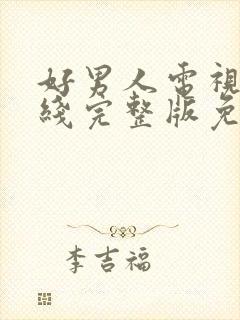 好男人電視
綫完整版免
李吉福